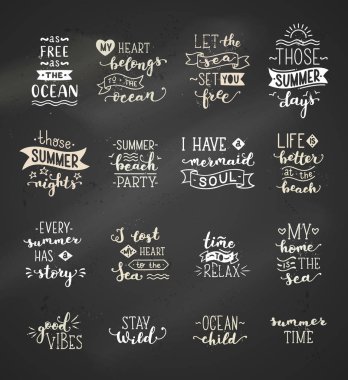 as
FREE
as
THE
OCEAN
MY HEART
belongs
TO THE
ocean
LET the
sea
SET YOU
free
THOSE
SUMMER
days
those
SUMMER
nights
SUMMER
beach
PARTY
I HAVE A
mermaid
SOUL
LIFE IS
better
at the
beach
EVERY
summer
HAS A
story
I lost
MY HEART
to the
Sea
time
TO
RELAX
MY
home
IS THE
sea
good
VIBES
STAY
wild
OCEAN
child
summer
TIME